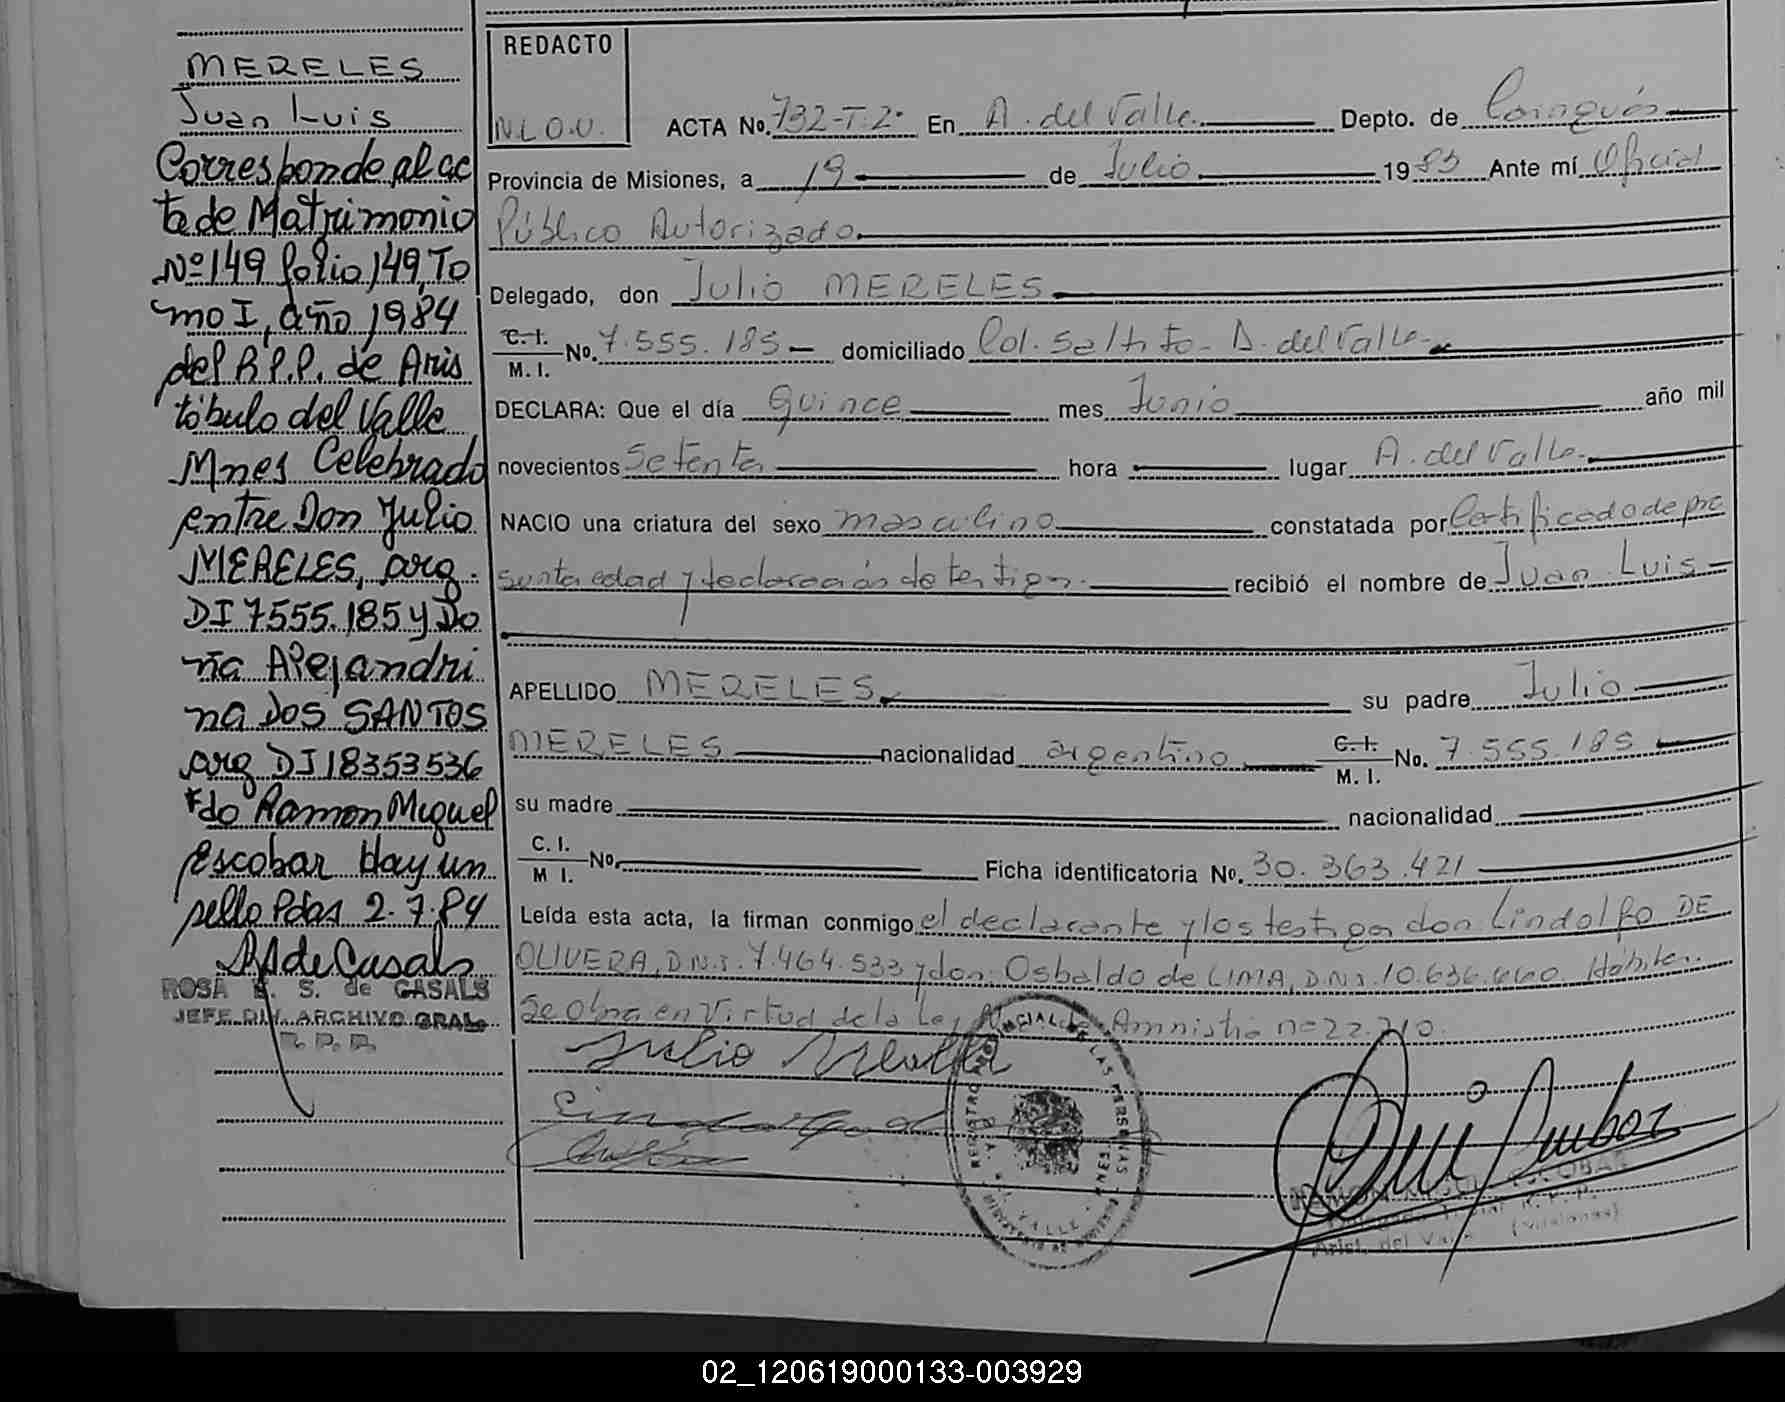 MERELES
Juan Luis
Corresponde al ac
ta de Matrimonio
Nº 149 folio 149, To
mo I, año 1984
del R.P.P. de Aris
tóbulo del Valle
Mnes Celebrado
entre Don Julio
MERELES, arg.
DI 7555.185 y Do
ña Alejandri
na DOS SANTOS
arg DI 18353536
Fdo Ramon Miguel
Escobar Hay un
sello Pdas 2.7.84
RSdeCasals
ROSA E. S. de CASALS
JEFE DIV. ARCHIVO GRAL.
R. P. P.
REDACTO
N.L.O.V.
ACTA No. 732-T.2º En A. del Valle Depto. de Cainguás
Provincia de Misiones, a 19 de Julio 1983 Ante mí Oficial
Público Autorizado.
Delegado, don Julio MERELES
C. I. / M. I. No. 7.555.185 domiciliado Col. Saltito - A. del Valle
DECLARA: Que el día Quince mes Junio año mil
novecientos Setenta hora lugar A. del Valle.
NACIO una criatura del sexo masculino constatada por Certificado de pre
sunta edad y declaración de testigos. recibió el nombre de Juan Luis
APELLIDO MERELES su padre Julio
MERELES nacionalidad argentino C. I. / M. I. No. 7.555.185
su madre nacionalidad
C. I. / M I. No. Ficha identificatoria No. 30.363.421
Leída esta acta, la firman conmigo el declarante y los testigos don Lindolfo DE
OLIVERA, D.N.I. 7.464.533 y don Osbaldo de LIMA, D.N.I. 10.636.660. Hábiles.
Se Obra en Virtud de la Ley de Amnistia nº 22.710.
Julio
REGISTRO PROVINCIAL DE LAS PERSONAS
RAMON MIGUEL ESCOBAR
R. P. P.
Arist. del Valle (Misiones)
02_120619000133-003929